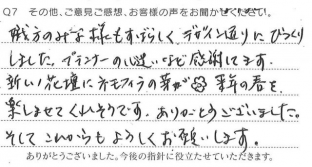 Q7 その他、ご意見ご感想、お客様の声をお聞かせください。
職方のみな様もすばらしく、デザイン通りにびっくり
しました。プランナーの心遣いなど感謝してます。
新しい花壇にネモフィラの芽が 来年の春を
楽しませてくれそうです。ありがとうございました。
そしてこれからもよろしくお願いします。
ありがとうございました。今後の指針に役立たせていただきます。